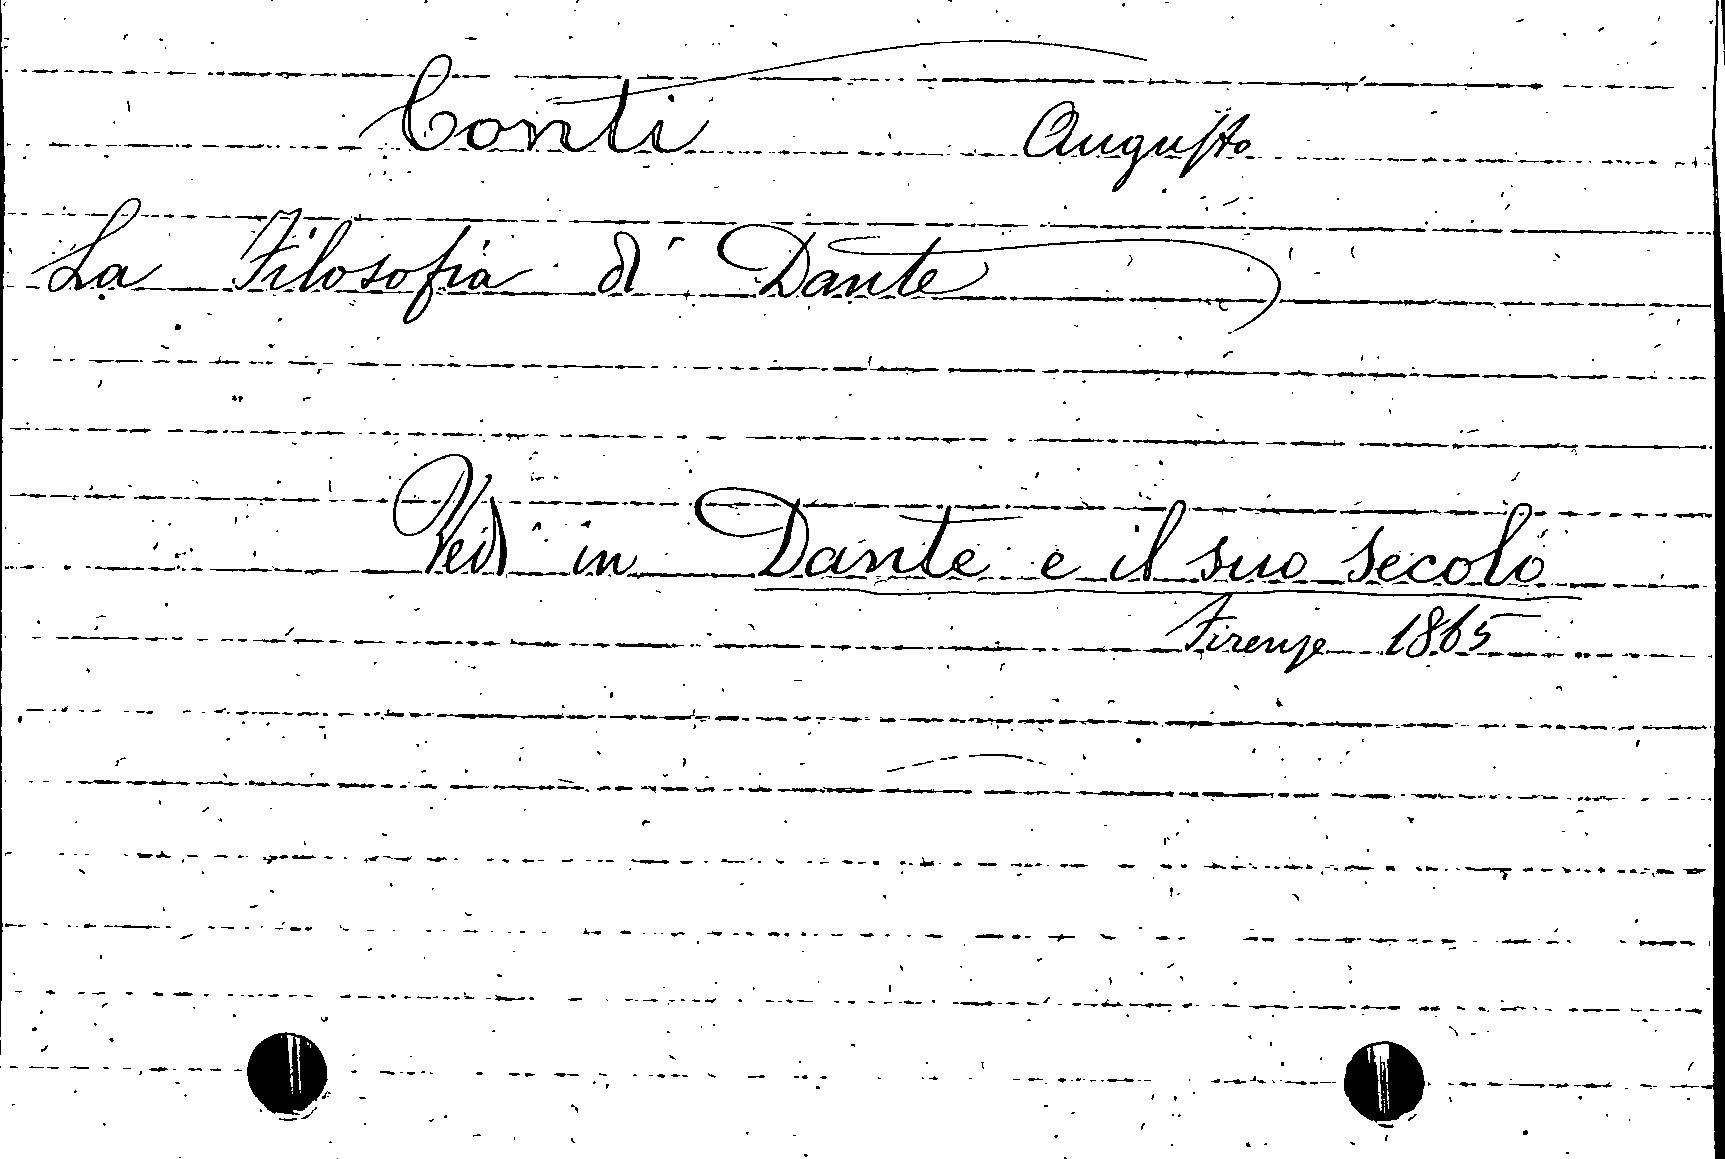 Conti Augusto
La Filosofia di Dante
Vedi in Dante e il suo secolo
Firenze 1865